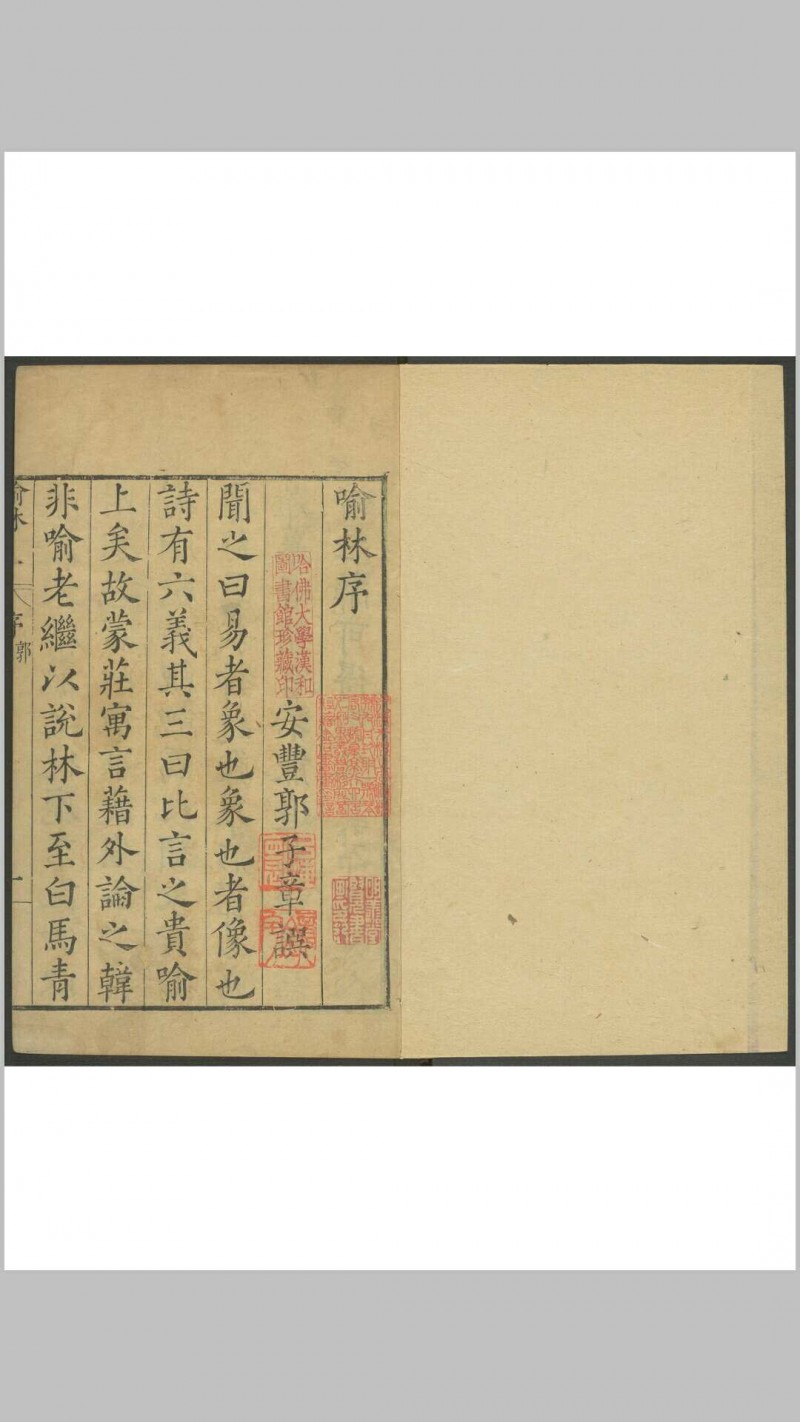 喻林序
安豐郭子章譔
哈佛大學漢和
圖書館珍藏印
聞之曰易者象也象也者像也
詩有六義其三曰比言之貴喻
上矣故蒙莊寓言藉外論之韓
非喻老繼以說林下至白馬青
序
郭
一